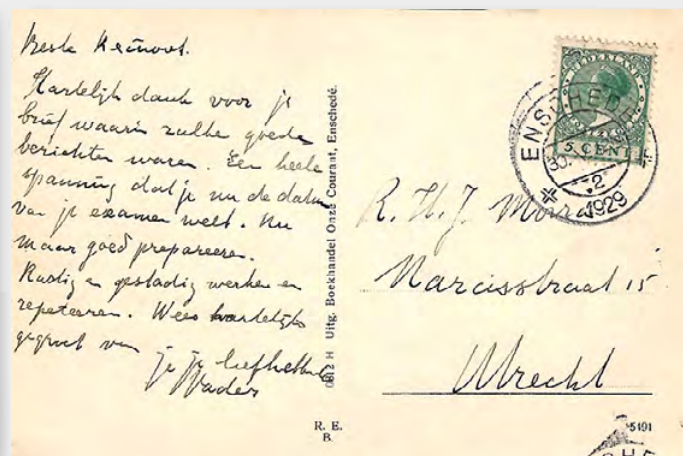 Beste Reinout.
Hartelijk dank voor je
brief waarin zulke goede
berichten waren. Een heele
spanning dat je nu de datum
van je examen weet. Nu
maar goed prepareeren.
Rustig en gestadig werken en
repeteeren. Wees hartelijk
gegroet van
je je liefhebbende
Vader
0812 H Uitg. Boekhandel Onze Courant, Enschedé.
NEDERLAND
5 CENT
ENSCHEDE
2
1929
R. H. J.
Narcisstraat 15
Utrecht
R. E.
B.
5191